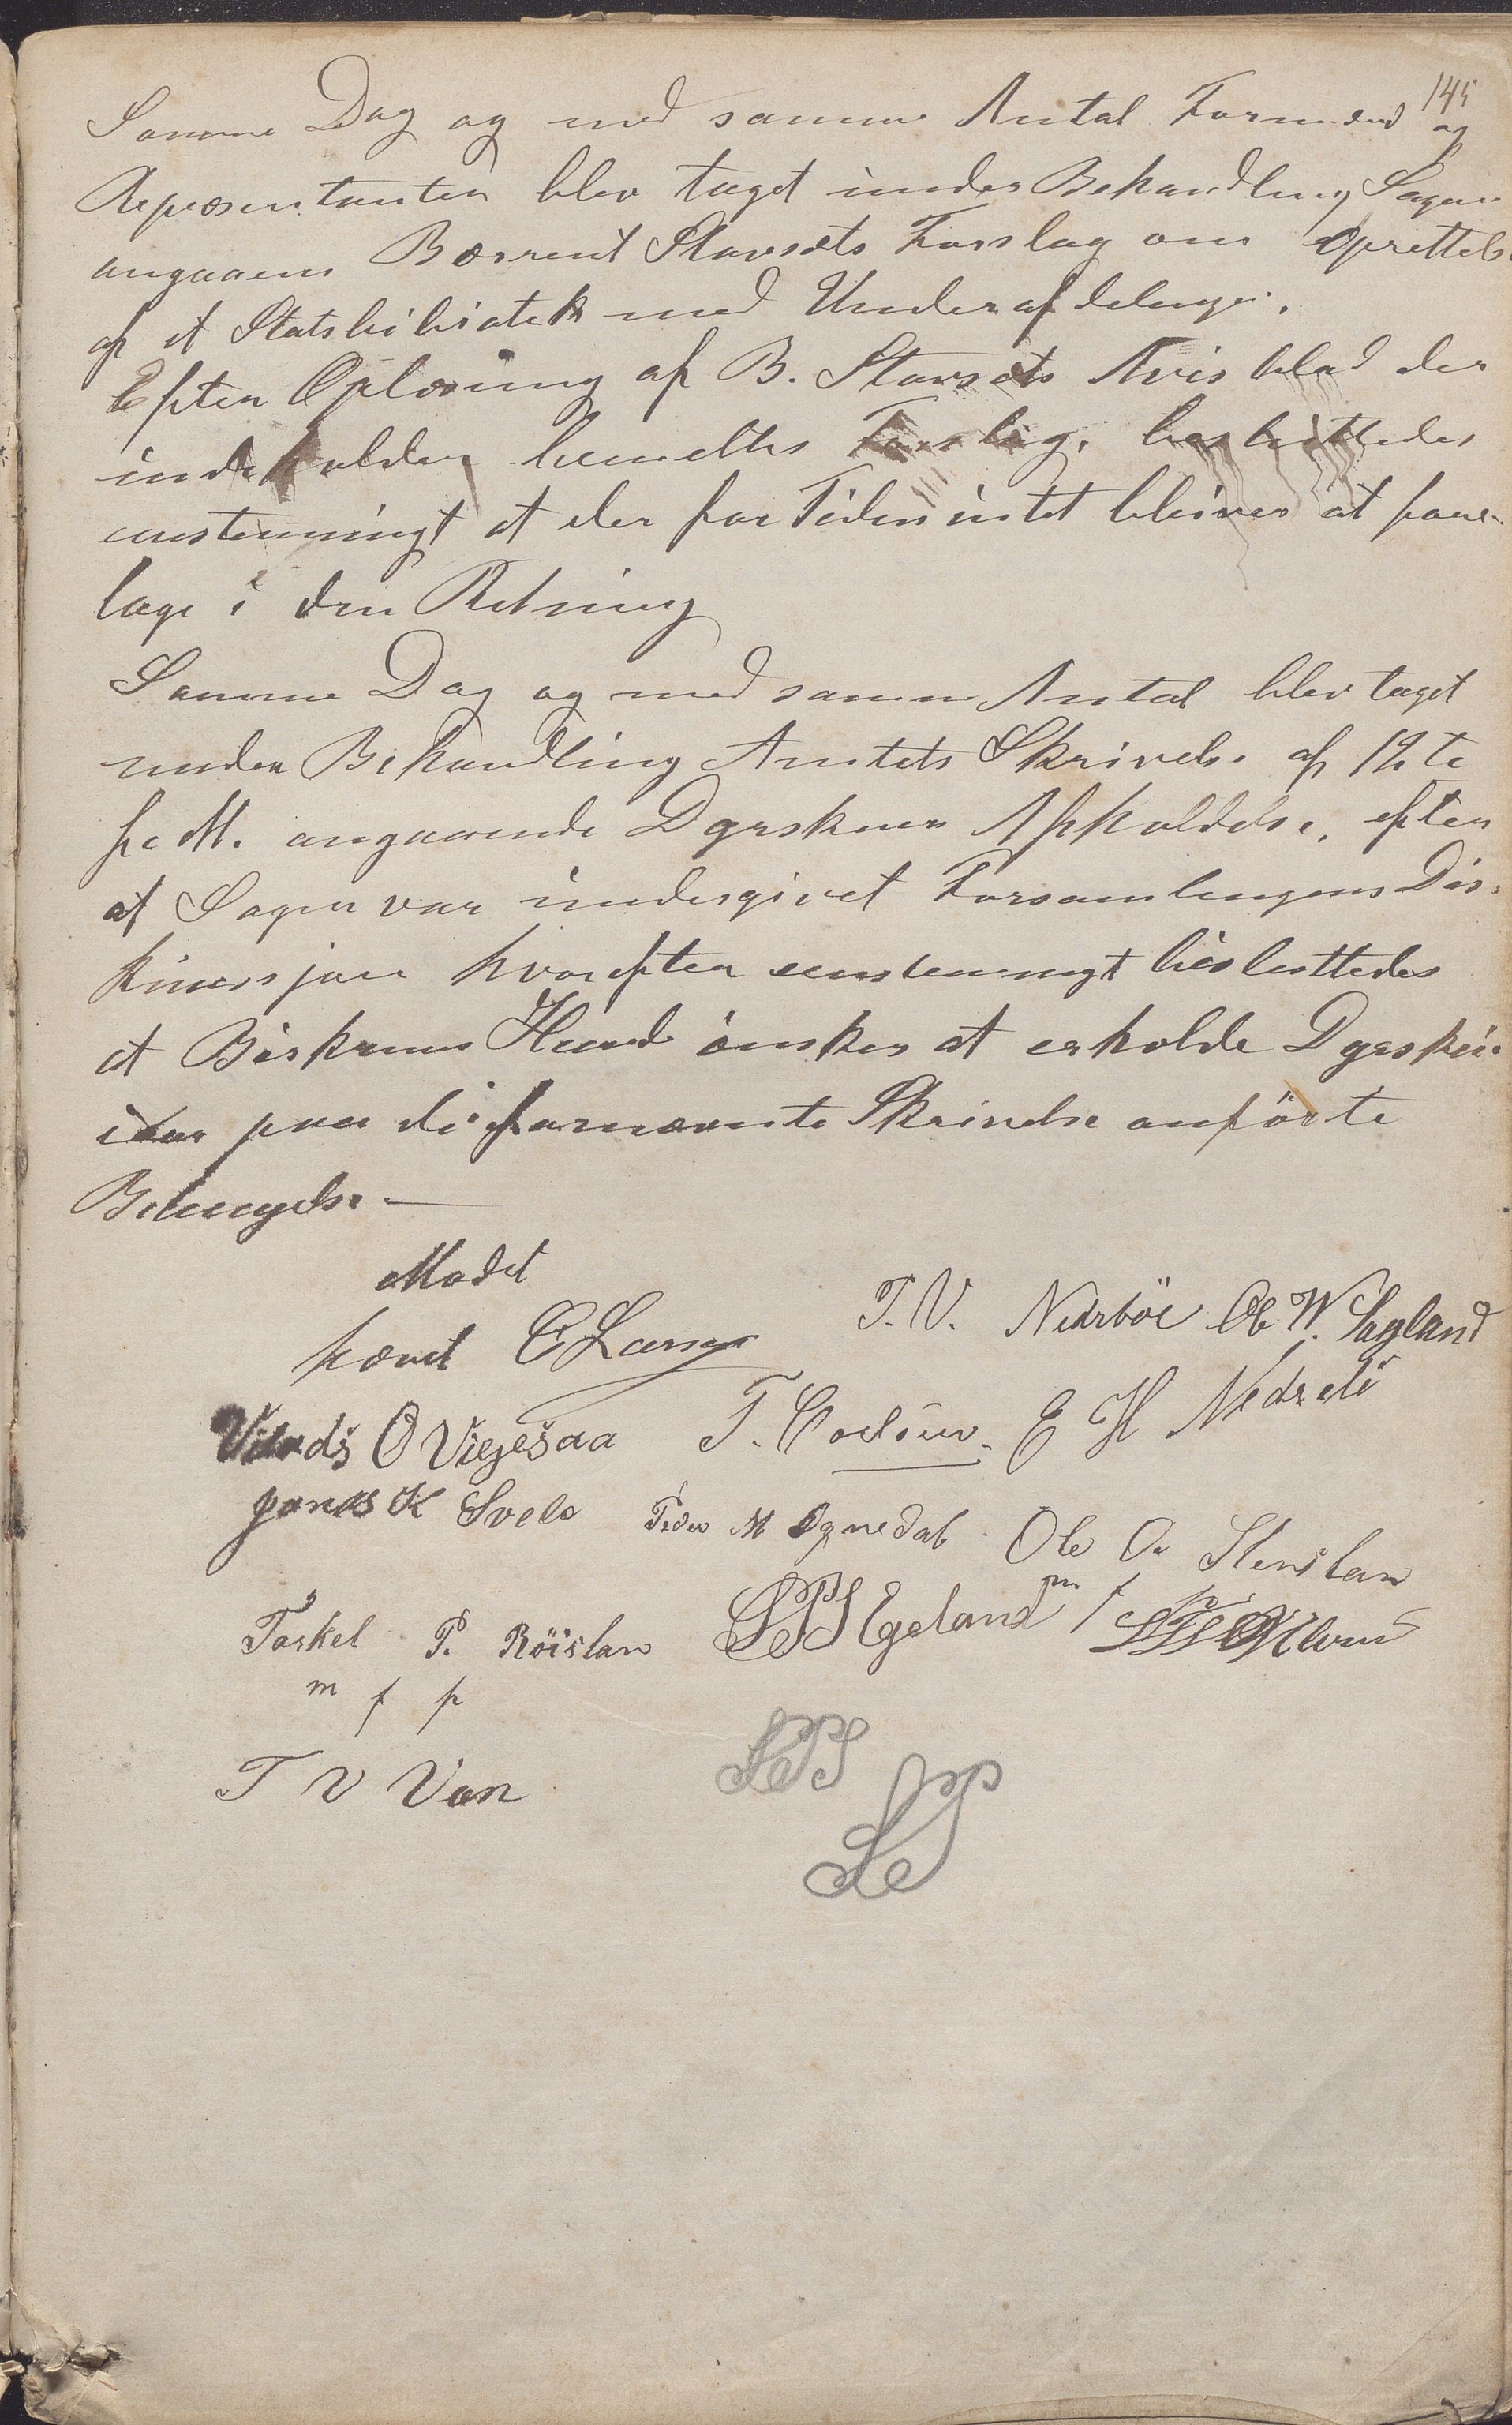 145
Samme Dag og med samme Antal Formænd og
Repræsentanter blev taget under Behandling Sagen
angaaene Bærrent Stavsets Forslag om Oprettels
af et Statsbibiotek med Underafdelinger.
Efter Oplæsning af B. Stavsets Avisblad der
indeholder bemelte Forslag, besluttedes
enstemmigt at der for Tiden intet bliver at fore-
tage i den Retning
Samme Dag og med samme Antal blev taget
under Behandling Amtets Skrivelse af 12te
f. M. angaaende Dyrskuers Afholdelse, efter
at Sagen var undergivet Forsamlingens Dis-
kusjon hvorefter enstemmigt besluttedes
at Birkrems Herred ønsker at erholde Dyrskue
paa de i fornævnte Skrivelse anførte
Betingelse. —
Mødet
hævet
T. V. Nedrböe Ole W. Sagland
Vilads O Vigesaa T. E H Nedrebö
Jonas K Svela Peder M Ognedal Ole O. Stenslan
Torkel P. Röislan SPS Egeland m f
m f p
T V Van
SPS
SP